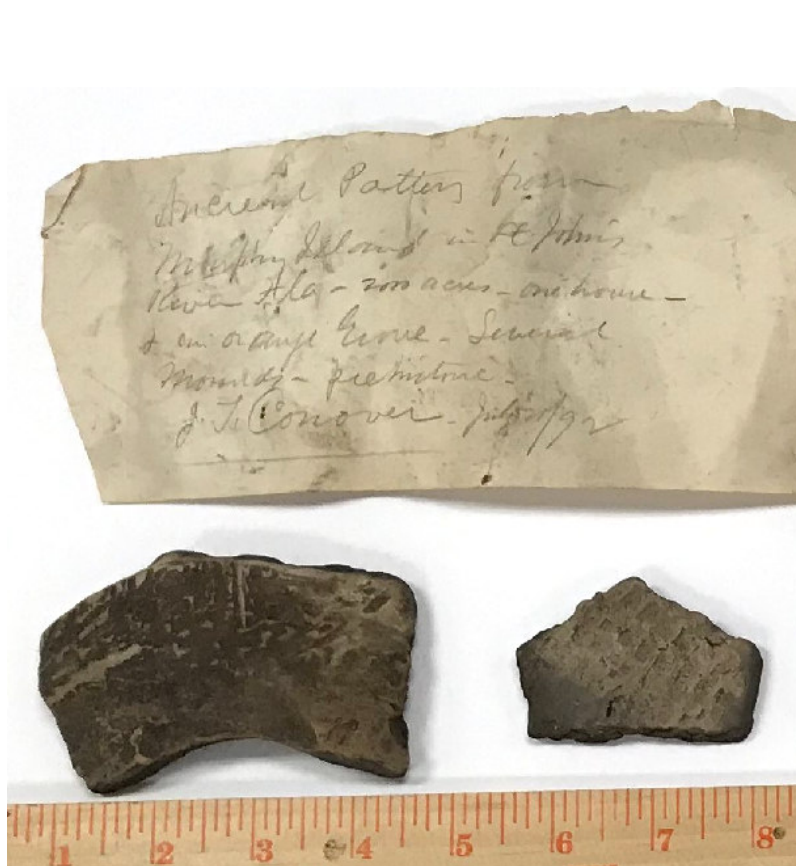 Ancient Pottery from
Murphy Island in St Johns
River Fla - 200 acres - one house -
& an orange Grove - Several
Mounds - prehistoric -
J. T. Conover - /92
1 2 3 4 5 6 7 8